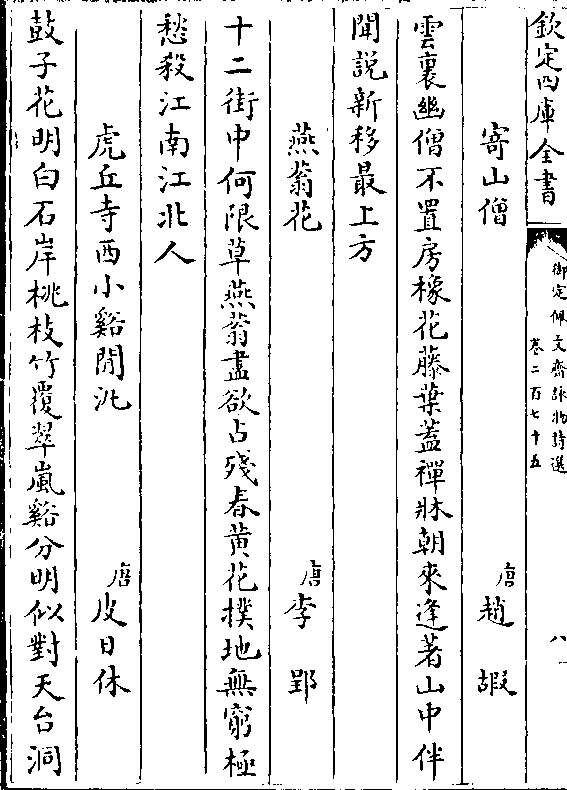 欽定四庫全書
御定佩文齋詠物詩選
卷二百七十五
八
寄山僧
唐趙嘏
雲裏幽僧不置房橡花藤葉蓋禪牀朝來逢著山中伴
聞説新移最上方
燕蓊花
唐李郢
十二街中何限草燕蓊盡欲占殘春黄花撲地無窮極
愁殺江南江北人
虎丘寺西小谿閒汎
唐皮日休
鼓子花明白石岸桃枝竹覆翠嵐谿分明似對天台洞